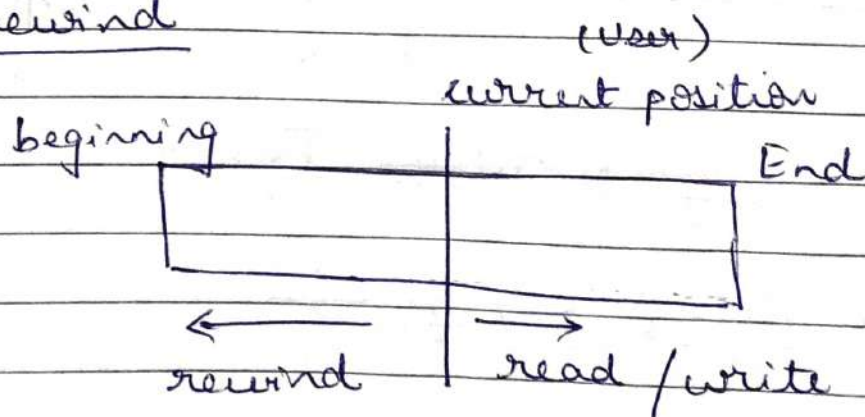 ewind
(User)
current position
beginning
End
rewind
read / write